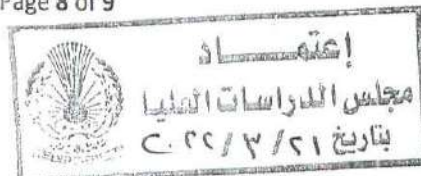 Page 8 of 9
إعتمـــــــاد
مجلس الدراسات العليا
بتاريخ ٢١ / ٣ / ٢٠٢٢